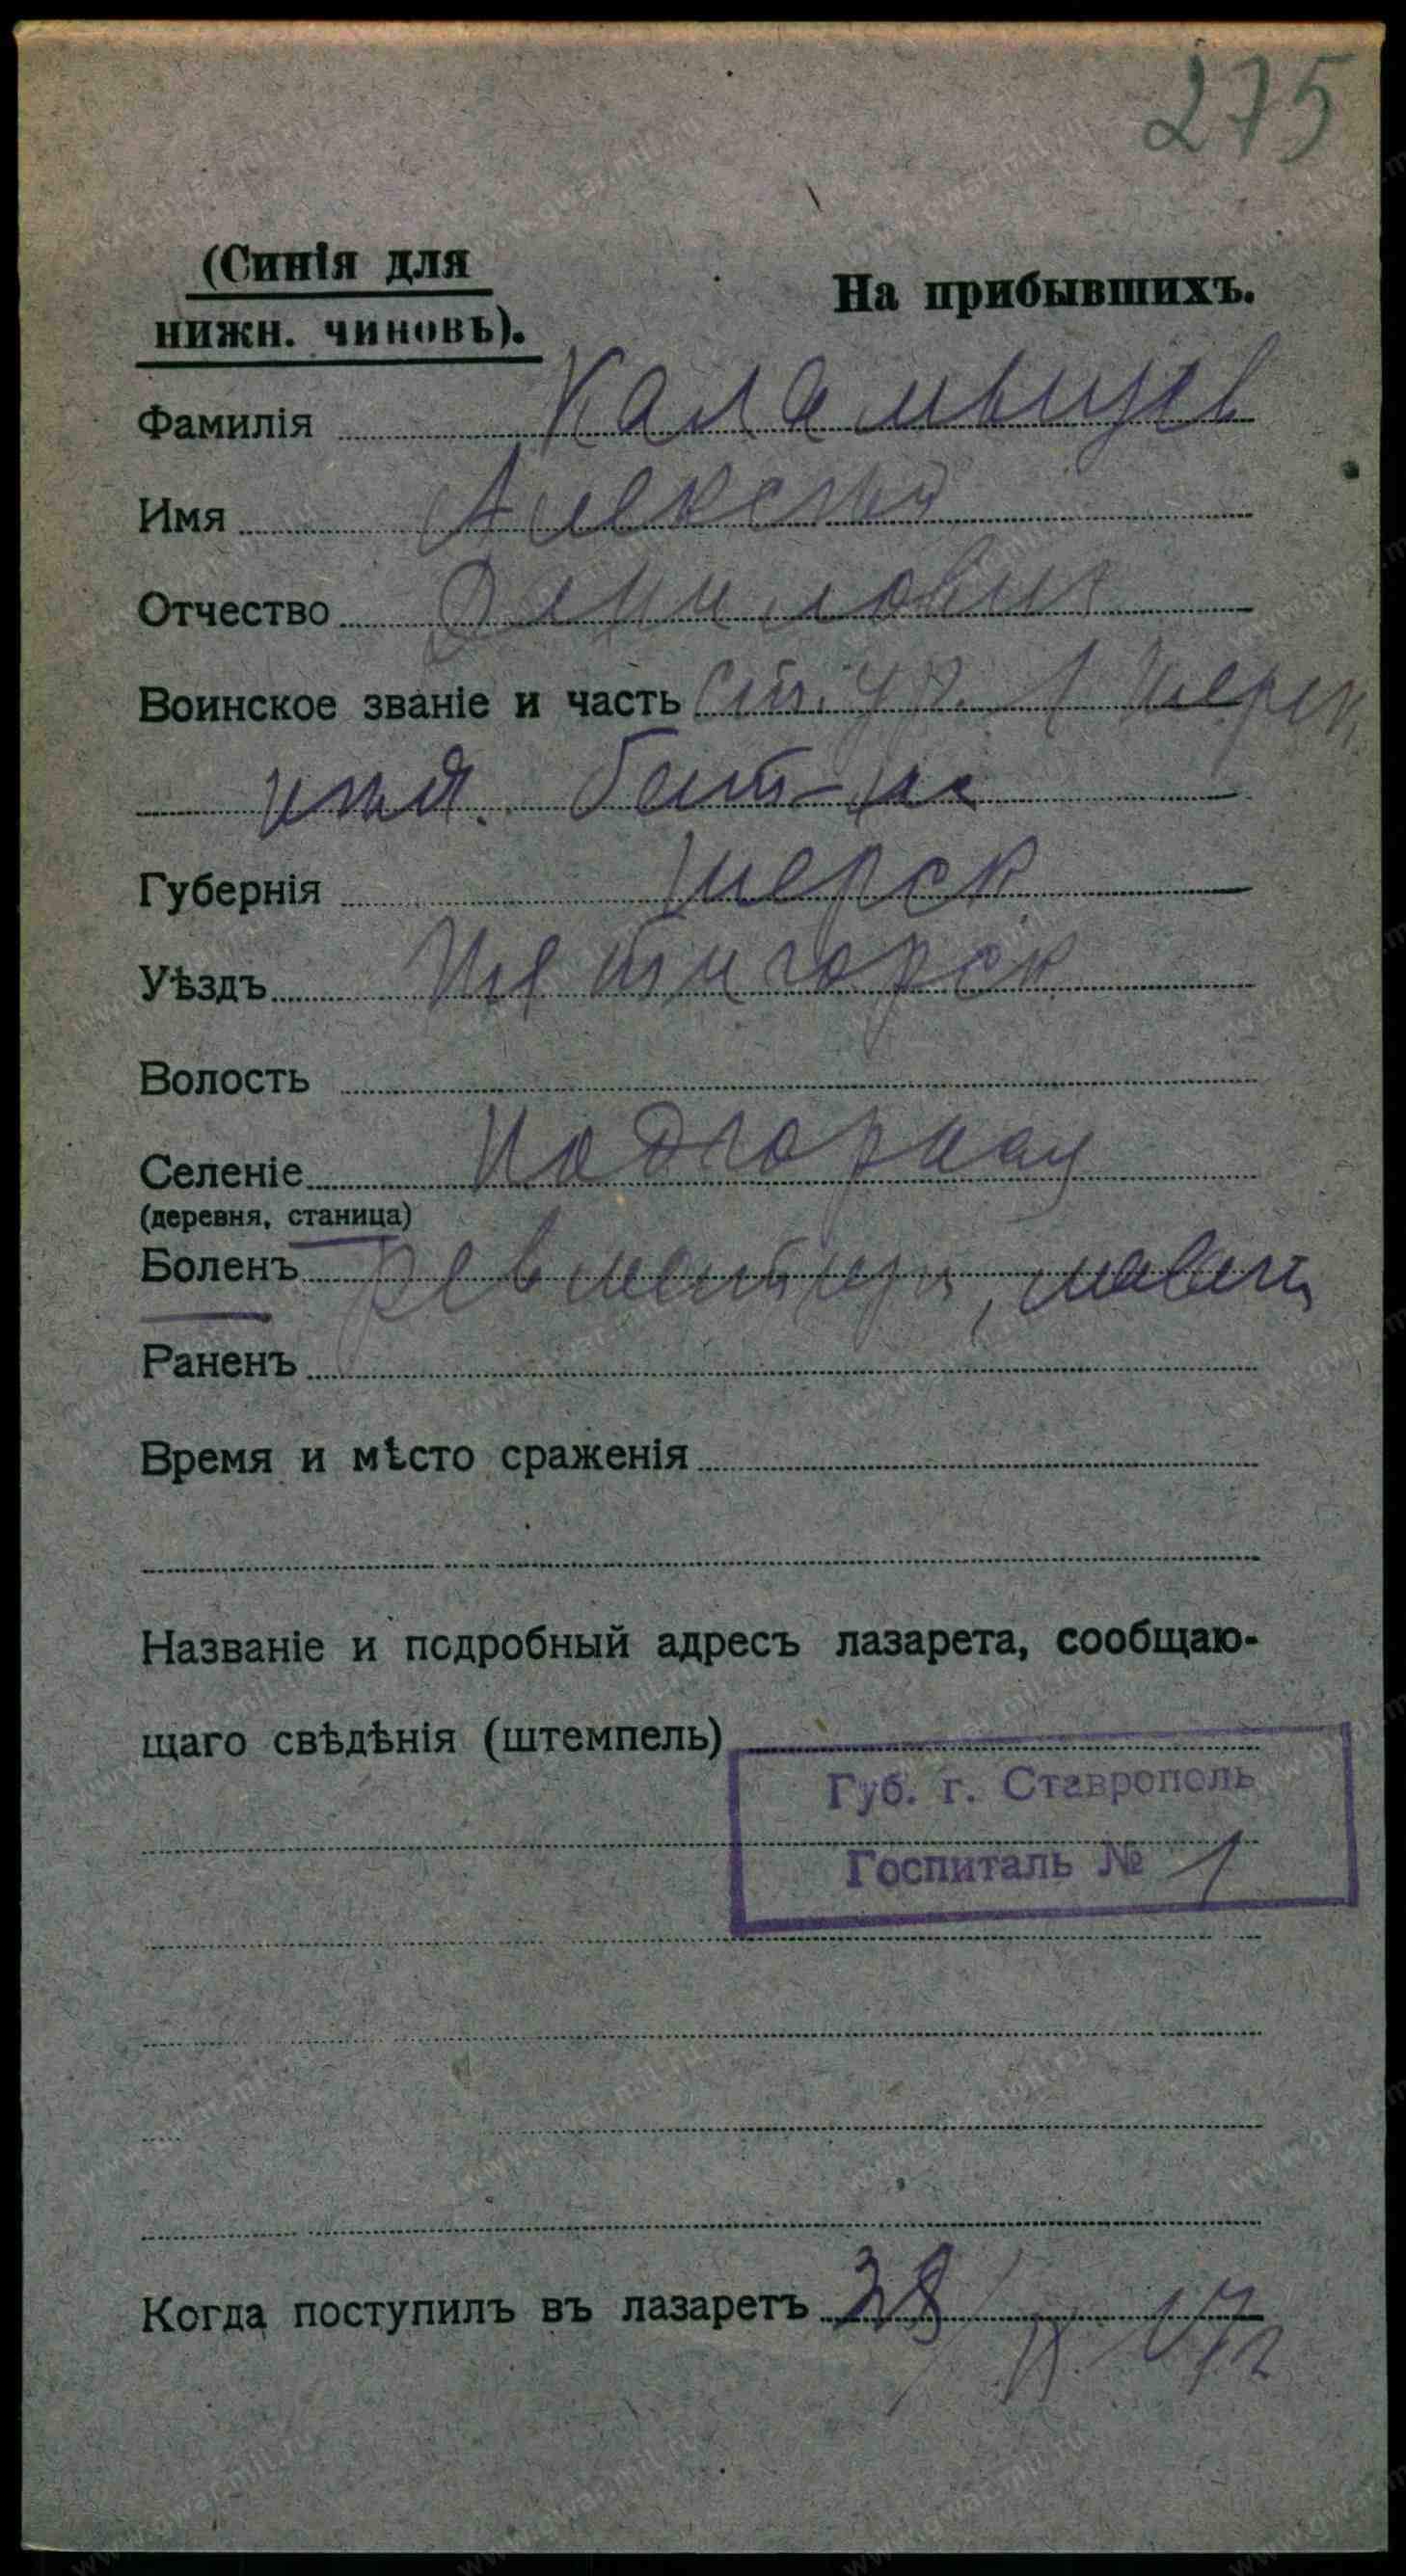 275
(Синія для
нижн. чиновъ).
На прибывшихъ.
Фамилія Каламыцев
Имя Алексей
Отчество Данилович
Воинское званіе и часть Ст. ур. 1 Терск
Губернія Терск
Уѣздъ Пятигорск
Волость
Селеніе Подгорная
(деревня, станица)
Боленъ
Раненъ
Время и мѣсто сраженія
Названіе и подробный адресъ лазарета, сообщаю-
щаго свѣдѣнія (штемпель)
Губ. г. Ставрополь
Госпиталь № 1
Когда поступилъ въ лазаретъ 28/II 17 г